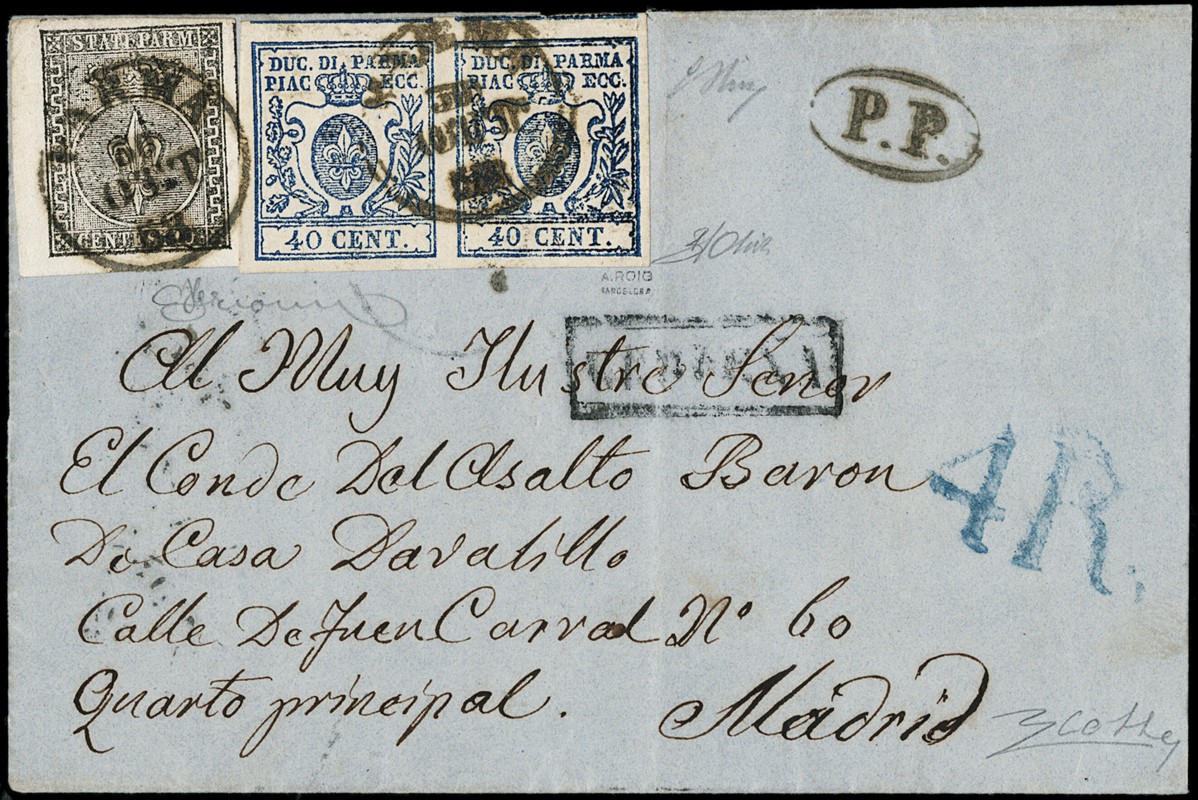 STATI PARM
CENTES.
DUC. DI PARMA
PIAC ECC.
40 CENT.
DUC. DI PARMA
PIAC ECC.
40 CENT.
P.P.
A.ROIG
BARCELONA
Al Muy Ilustre Senor
El Conde Del Asalto Baron
De Casa Davalillo
Calle De Fuen Carral Nº 60
Quarto principal.
Madrid
4R.